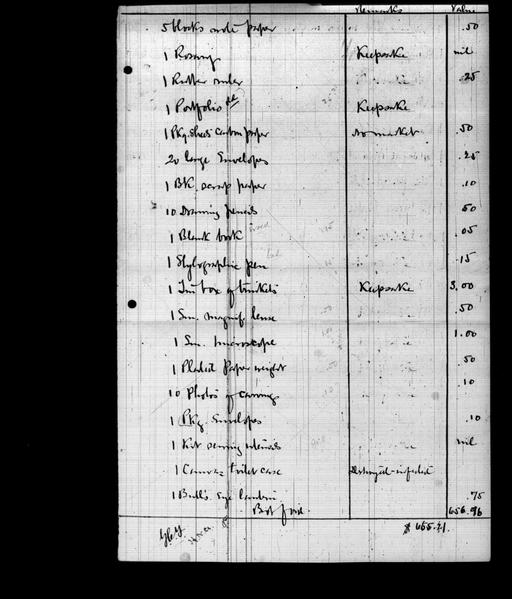 Remarks Value
5 blocks note paper .50
1 Rosary Keepsake nil
1 Rubber ruler .25
1 Portfolio Keepsake
1 Pkg. sheets carbon paper No market .50
20 large Envelopes .25
1 Bk. scrap paper .10
10 Drawing pencils .50
1 Blank book .05
1 Stylographic pen .15
1 Tin box of trinkets Keepsake 3.00
1 Sm. magnif. lense .50
1 Sm. microscope 1.00
1 Plated Paper weight .50
10 Photos of carvings .10
1 Pkg. Envelopes .10
1 Kit sewing nil
1 Canvas toilet case Destroyed - infected
1 Bull's Eye lantern .75
Brot ford. 656.96
$ 655.21